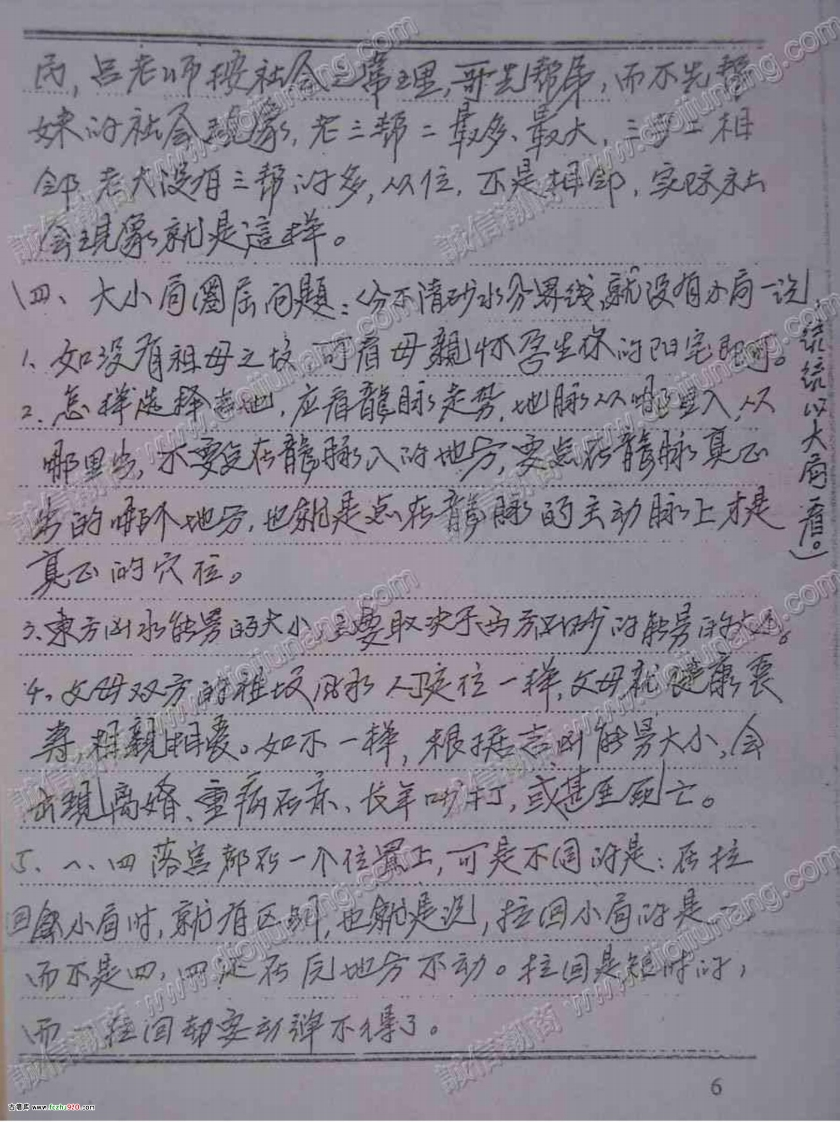 丙,吕老师按社会之常理,哥先帮弟,而不先帮
妹的社会现象,老三帮二最多、最大,三与二相
邻,老大没有三帮的多,从位,不是相邻,实际社
会现象就是這样。
四、大小局圈屈问題:(分不清砂水分界线,就没有小局一说,
统统以大局看。)
1、如没有祖母之坟,可看母親怀孕生你的阳宅即可。
2、怎样选择吉地,应看龍脉走势,地脉从哪里入,从
哪里出,不要点在龍脉入的地方,要点在龍脉真正
出的哪个地方,也就是点在龍脉的主动脉上才是
真正的穴位。
3、東方凶水能量的大小,主要取决于西方凶砂的能量的大小。
4、父母双方的祖坟风水入门定位一样,父母就健康長
寿,相親相爱。如不一样,根据吉凶能量大小,会
出現離婚、重病在床、长年吵打,或甚至死亡。
5、一、四落宫都在一个位置上,可是不同的是:在拉
回小局时,就有区别,也就是说,拉回小局的是一
而不是四,四还在原地方不动。拉回是短时的,
而一拉回却要动弹不得了。
6
誠信潮商 www.diqiunang.com
古書庫 www.fczhu920.com